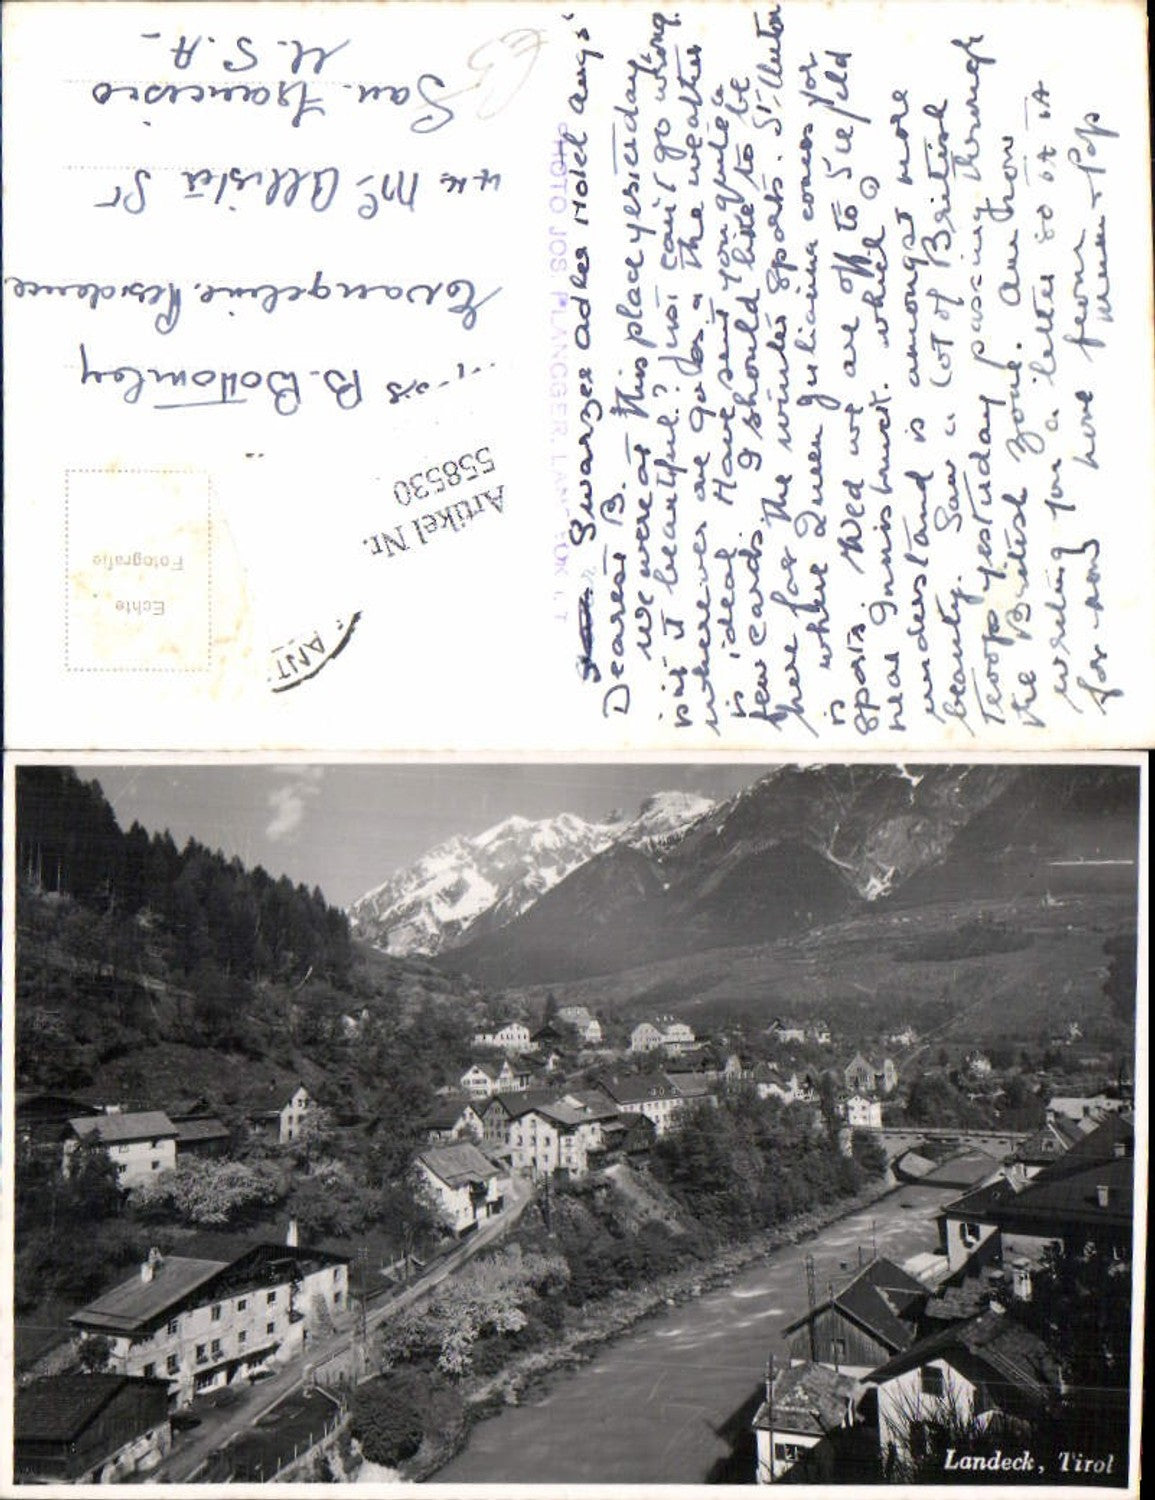 Swarzer Adler Hotel Aug 5
Dearest B. This place yesterday
we were at
isn't it beautiful? Just can't go wrong
wherever one goes & the weather
is ideal. Have sent you quite a
few cards. I should like to be
here for the winter sports. St. Anton
where Queen Juliana comes for
sports. Wed we are off to Seefeld
near Innsbruck. which I
understand is amongst more
beauty. Saw a lot of British
troops yesterday passing through
the British Zone. Am now
writing for a letter so ta ta
for now here from
Mum & Pop
PHOTO JOS. PLANGGER, LANDECK
B. Bottomley
Evangeline Residence
44 McAllister St
San Francisco
U.S.A-
Echte
Fotografie
Artikel Nr.
558530
ANT
Landeck, Tirol